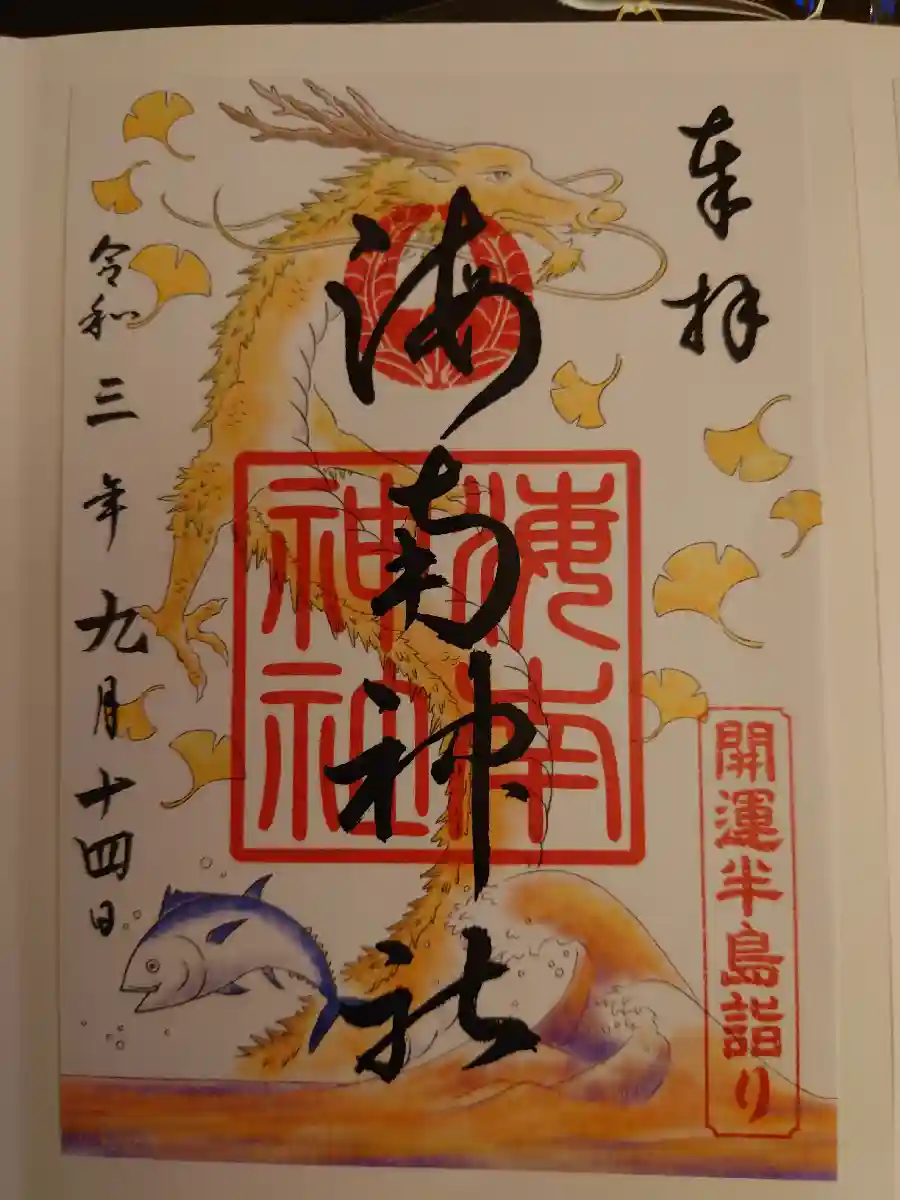 奉拝
海南神社
海南神社
開運半島詣り
令和三年九月十四日